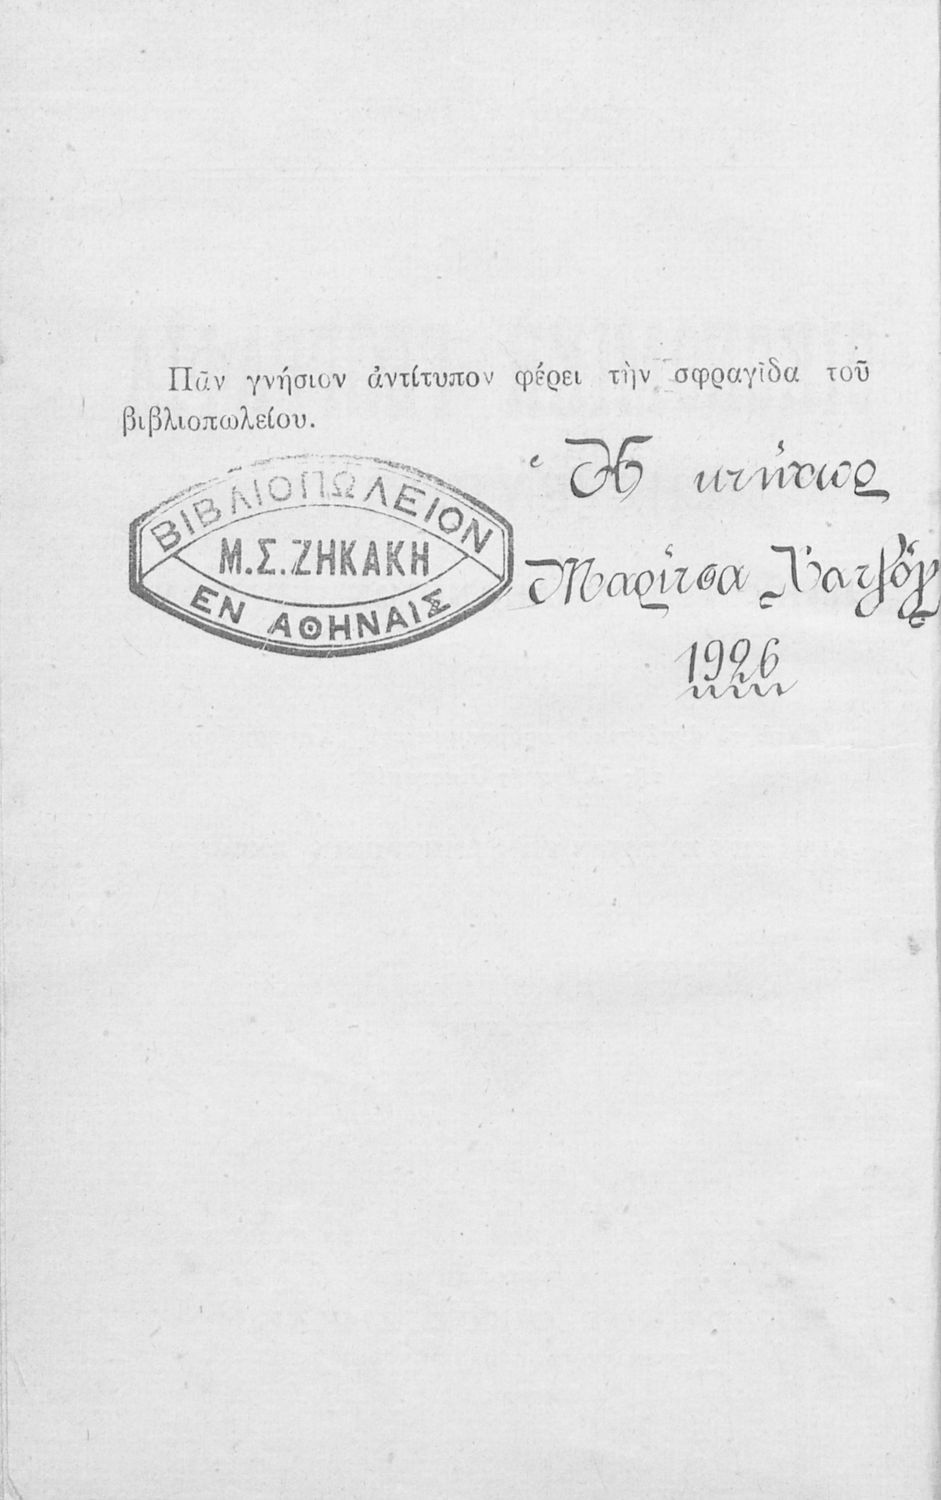 Πᾶν γνήσιον ἀντίτυπον φέρει τὴν σφραγῖδα τοῦ
βιβλιοπωλείου.
ΒΙΒΛΙΟΠΩΛΕΙΟΝ
Μ.Σ.ΖΗΚΑΚΗ
ΕΝ ΑΘΗΝΑΙΣ
Ἡ κτήτωρ
Μαρίτσα
1926